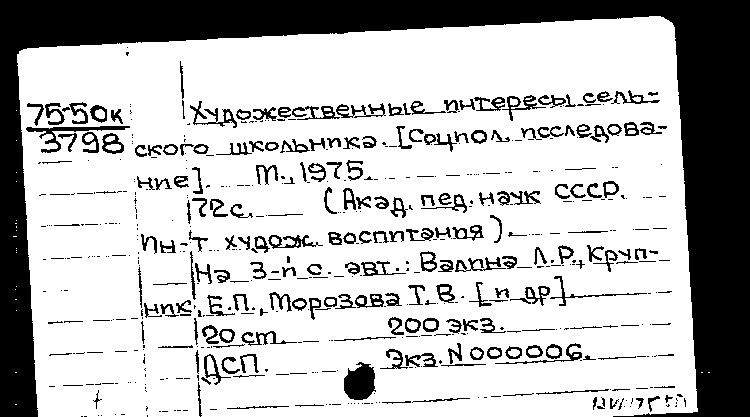 75-50к
3798
Художественные интересы сель-
ского школьника. [Социол. исследова-
ние]. М., 1975.
72 с. (Акад. пед. наук СССР.
Ин-т худож. воспитания).
На 3-й с. авт.: Валина Л.Р., Круп-
ник, Е.П., Морозова Т.В. [и др].
20 ст. 200 экз.
ДСП. Экз. N 000006.